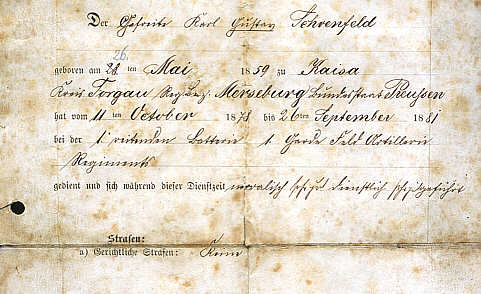 Der Gefreite Karl Gustav Fehrenfeld
26.
geboren am 28 ten Mai 1859 zu Kaisa
Kreis Torgau Reg. Bez. Merseburg Bundesstaat Preussen
hat vom 11 ten October 1878 bis 26ten September 1881
bei der 1 reitenden Batterie 1. Garde Feld Artillerie
Regiments
gedient und sich während dieser Dienstzeit moralisch sehr gut dienstlich sehr gut geführt
Strafen:
a) Gerichtliche Strafen: Keine